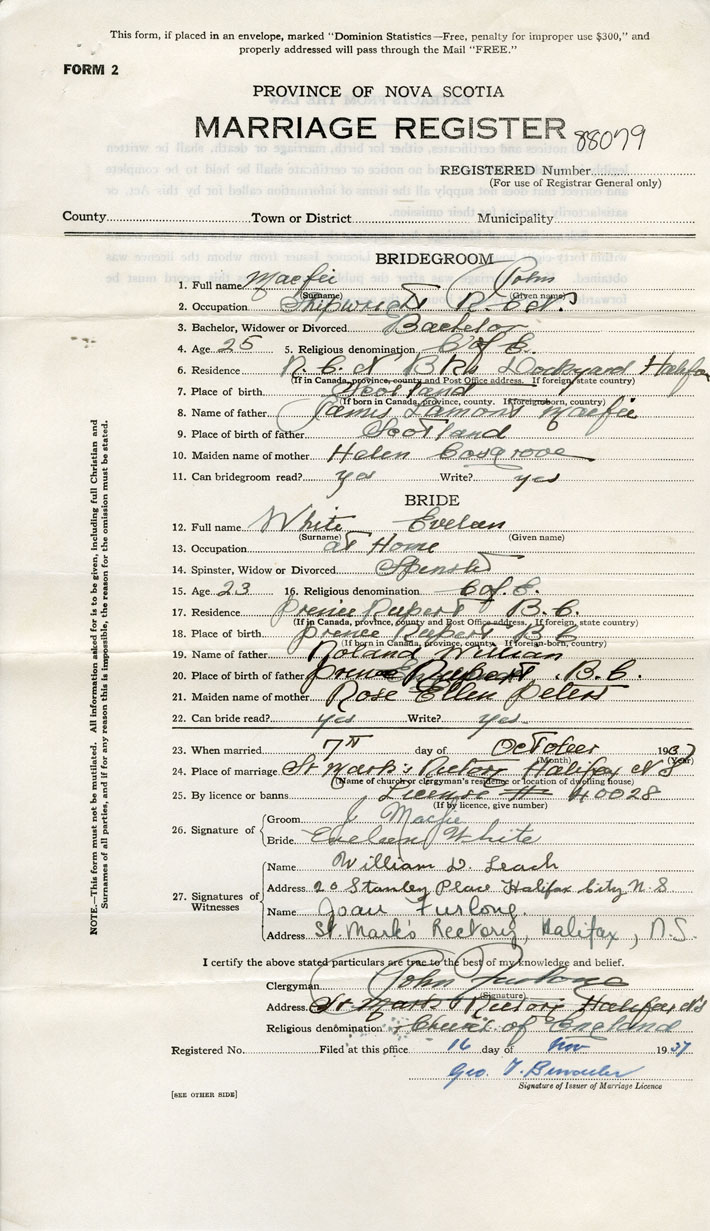 This form, if placed in an envelope, marked "Dominion Statistics—Free, penalty for improper use $300," and
properly addressed will pass through the Mail "FREE."
FORM 2
PROVINCE OF NOVA SCOTIA
MARRIAGE REGISTER 88079
REGISTERED Number
(For use of Registrar General only)
County Town or District Municipality
BRIDEGROOM
1. Full name Macfie John
(Surname) (Given name)
2. Occupation Shipwright R.C.N.
3. Bachelor, Widower or Divorced Bachelor
4. Age 25 5. Religious denomination C of E.
6. Residence R.C.N. BRks Dockyard Halifax
(If in Canada, province, county and Post Office address. If foreign, state country)
7. Place of birth Scotland
(If born in Canada, province, county. If foreign-born, country)
8. Name of father James Lamont Macfie
9. Place of birth of father Scotland
10. Maiden name of mother Helen Cosgrove
11. Can bridegroom read? yes Write? yes
BRIDE
12. Full name White Eveleen
(Surname) (Given name)
13. Occupation at Home
14. Spinster, Widow or Divorced Spinster
15. Age 23 16. Religious denomination C of E.
17. Residence Prince Rupert B.C.
(If in Canada, province, county and Post Office address. If foreign, state country)
18. Place of birth Prince Rupert B C
(If born in Canada, province, county. If foreign-born, country)
19. Name of father Roland William
20. Place of birth of father B.C.
21. Maiden name of mother Rose Ellen Peters
22. Can bride read? yes Write? yes
23. When married 7th day of October 1937
(Month) (Year)
24. Place of marriage St Mark's Rectory Halifax N S
(Name of church or clergyman's residence or location of dwelling house)
25. By licence or banns License # 40028
(If by licence, give number)
26. Signature of
Groom J Macfie
Bride Eveleen White
27. Signatures of Witnesses
Name William D. Leach
Address 20 Stanley Place Halifax City N.S
Name Joan Furlong.
Address St. Mark's Rectory, Halifax, N.S.
I certify the above stated particulars are true to the best of my knowledge and belief.
Clergyman John Furlong
(Signature)
Address St Marks Rectory Halifax N S
Religious denomination Church of England
Registered No. Filed at this office 16 day of Nov 1937
Geo. T.
Signature of Issuer of Marriage Licence
[SEE OTHER SIDE]
NOTE.—This form must not be mutilated. All information asked for is to be given, including full Christian and
Surnames of all parties, and if for any reason this is impossible, the reason for the omission must be stated.